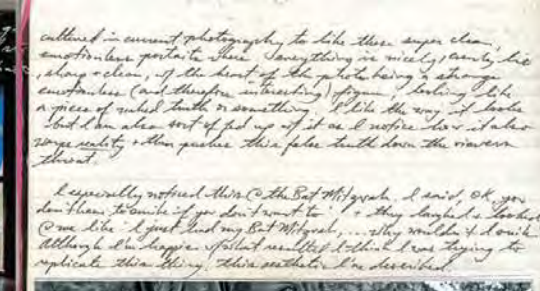 cultured in current photography to like these super clean,
emotionless portraits where everything is nicely, evenly lit
, sharp + clean, w/ the heart of the photo being a strange
emotionless (and therefore interesting) figure, looking like
a piece of naked truth or something. I like the way it looks
but I am also sort of fed up w/ it as I notice how it also
warps reality + then pushes this false truth down the viewers
throat.
I especially noticed this @ the Bat Mitzvah, I said, OK, you
don't have to smile if you don't want to + they laughed + looked
@ me like I just had my Bat Mitzvah, ... why wouldn't I smile
Although I'm happy w/ what resulted I think I was trying to
replicate this thing, this aesthetic I've described.